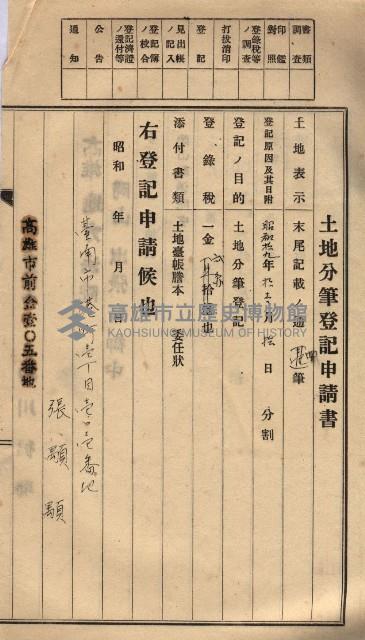 書類調査
印鑑對照
登錄稅等ノ調査
打拔消印
登記
見出帳ノ記入
登記簿ノ校合
登記濟證ノ還付等
公告
通知
土地分筆登記申請書
土地表示 末尾記載ノ通
筆
登記原因及其日附 昭和拾九年 月 日 分割
登記ノ目的 土地分筆登記
登錄稅 一金 拾 也
添付書類 土地臺帳謄本 委任狀
右登記申請候也
昭和 年 月
臺南市 壹丁目壹 壹番地
高雄市前金壹〇五番地
張 顯顯
高雄市立歷史博物館
KAOHSIUNG MUSEUM OF HISTORY